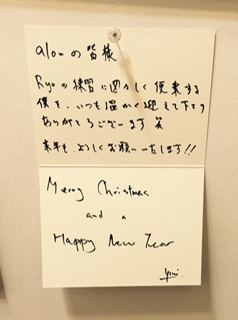 alonの皆様
Ryoの練習に図々しく便乗する
僕を、いつも温かく迎えて下さり
ありがとうございます
来年も、よろしくお願いいたします!!
Merry Christmas
and a
Happy New Year